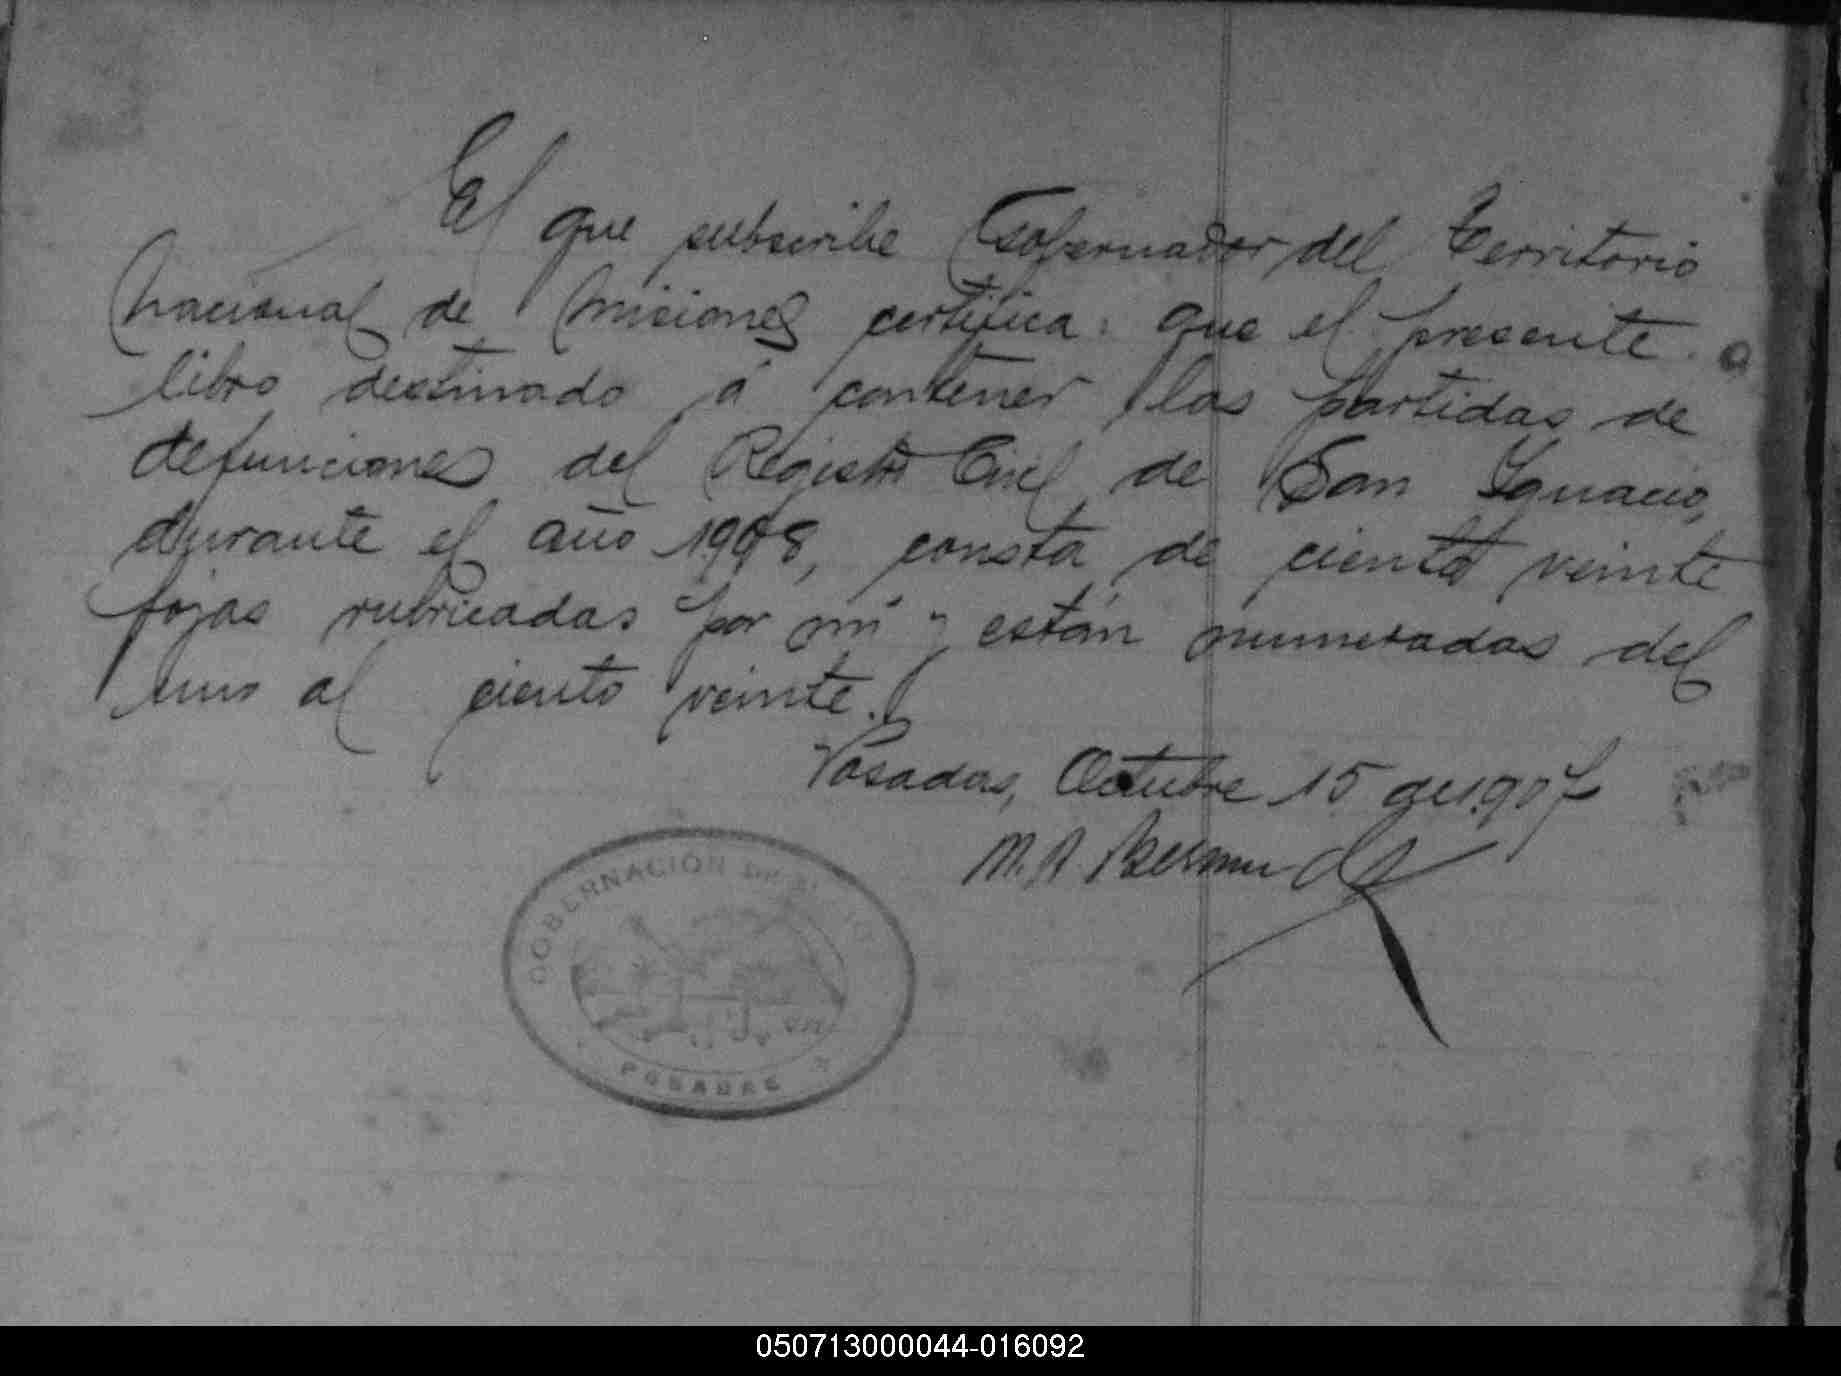 El que subscribe Gobernador del Territorio
Nacional de Misiones certifica: que el presente
libro destinado á contener las partidas de
defunciones del Registro Civil de San Ignacio,
durante el año 1908, consta de ciento veinte
fojas rubricadas por mí y están numeradas del
uno al ciento veinte.
Posadas, Octubre 15 de 1907
M. A. Bermudez
GOBERNACIÓN DE
POSADAS
050713000044-016092